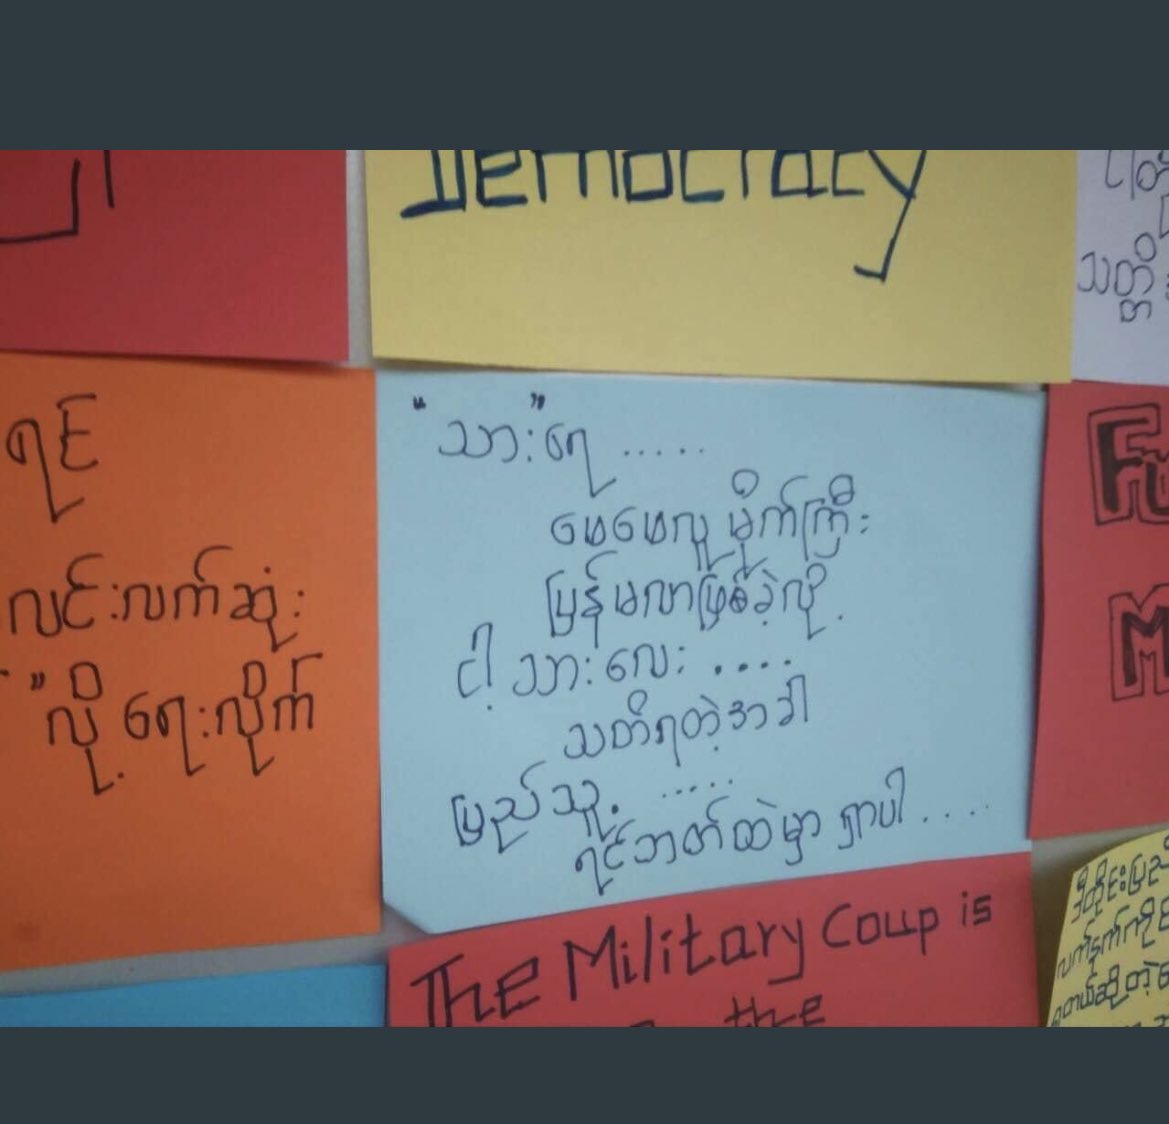 Democracy
ရင်
လင်းလက်ဆုံး
" လို့ ရေးလိုက်
"သား"ရေ .....
မေမေလူမိုက်ကြီး
ပြန်မလာဖြစ်ခဲ့လို့
ငါ့သားလေး ....
သတိရတဲ့အခါ
ပြည်သူ့ .....
ရင်ဘတ်ထဲမှာ ရှာပါ ....
သတ္တိ
Fu
M
The Military Coup is
the
ဒီတိုင်းပြည်